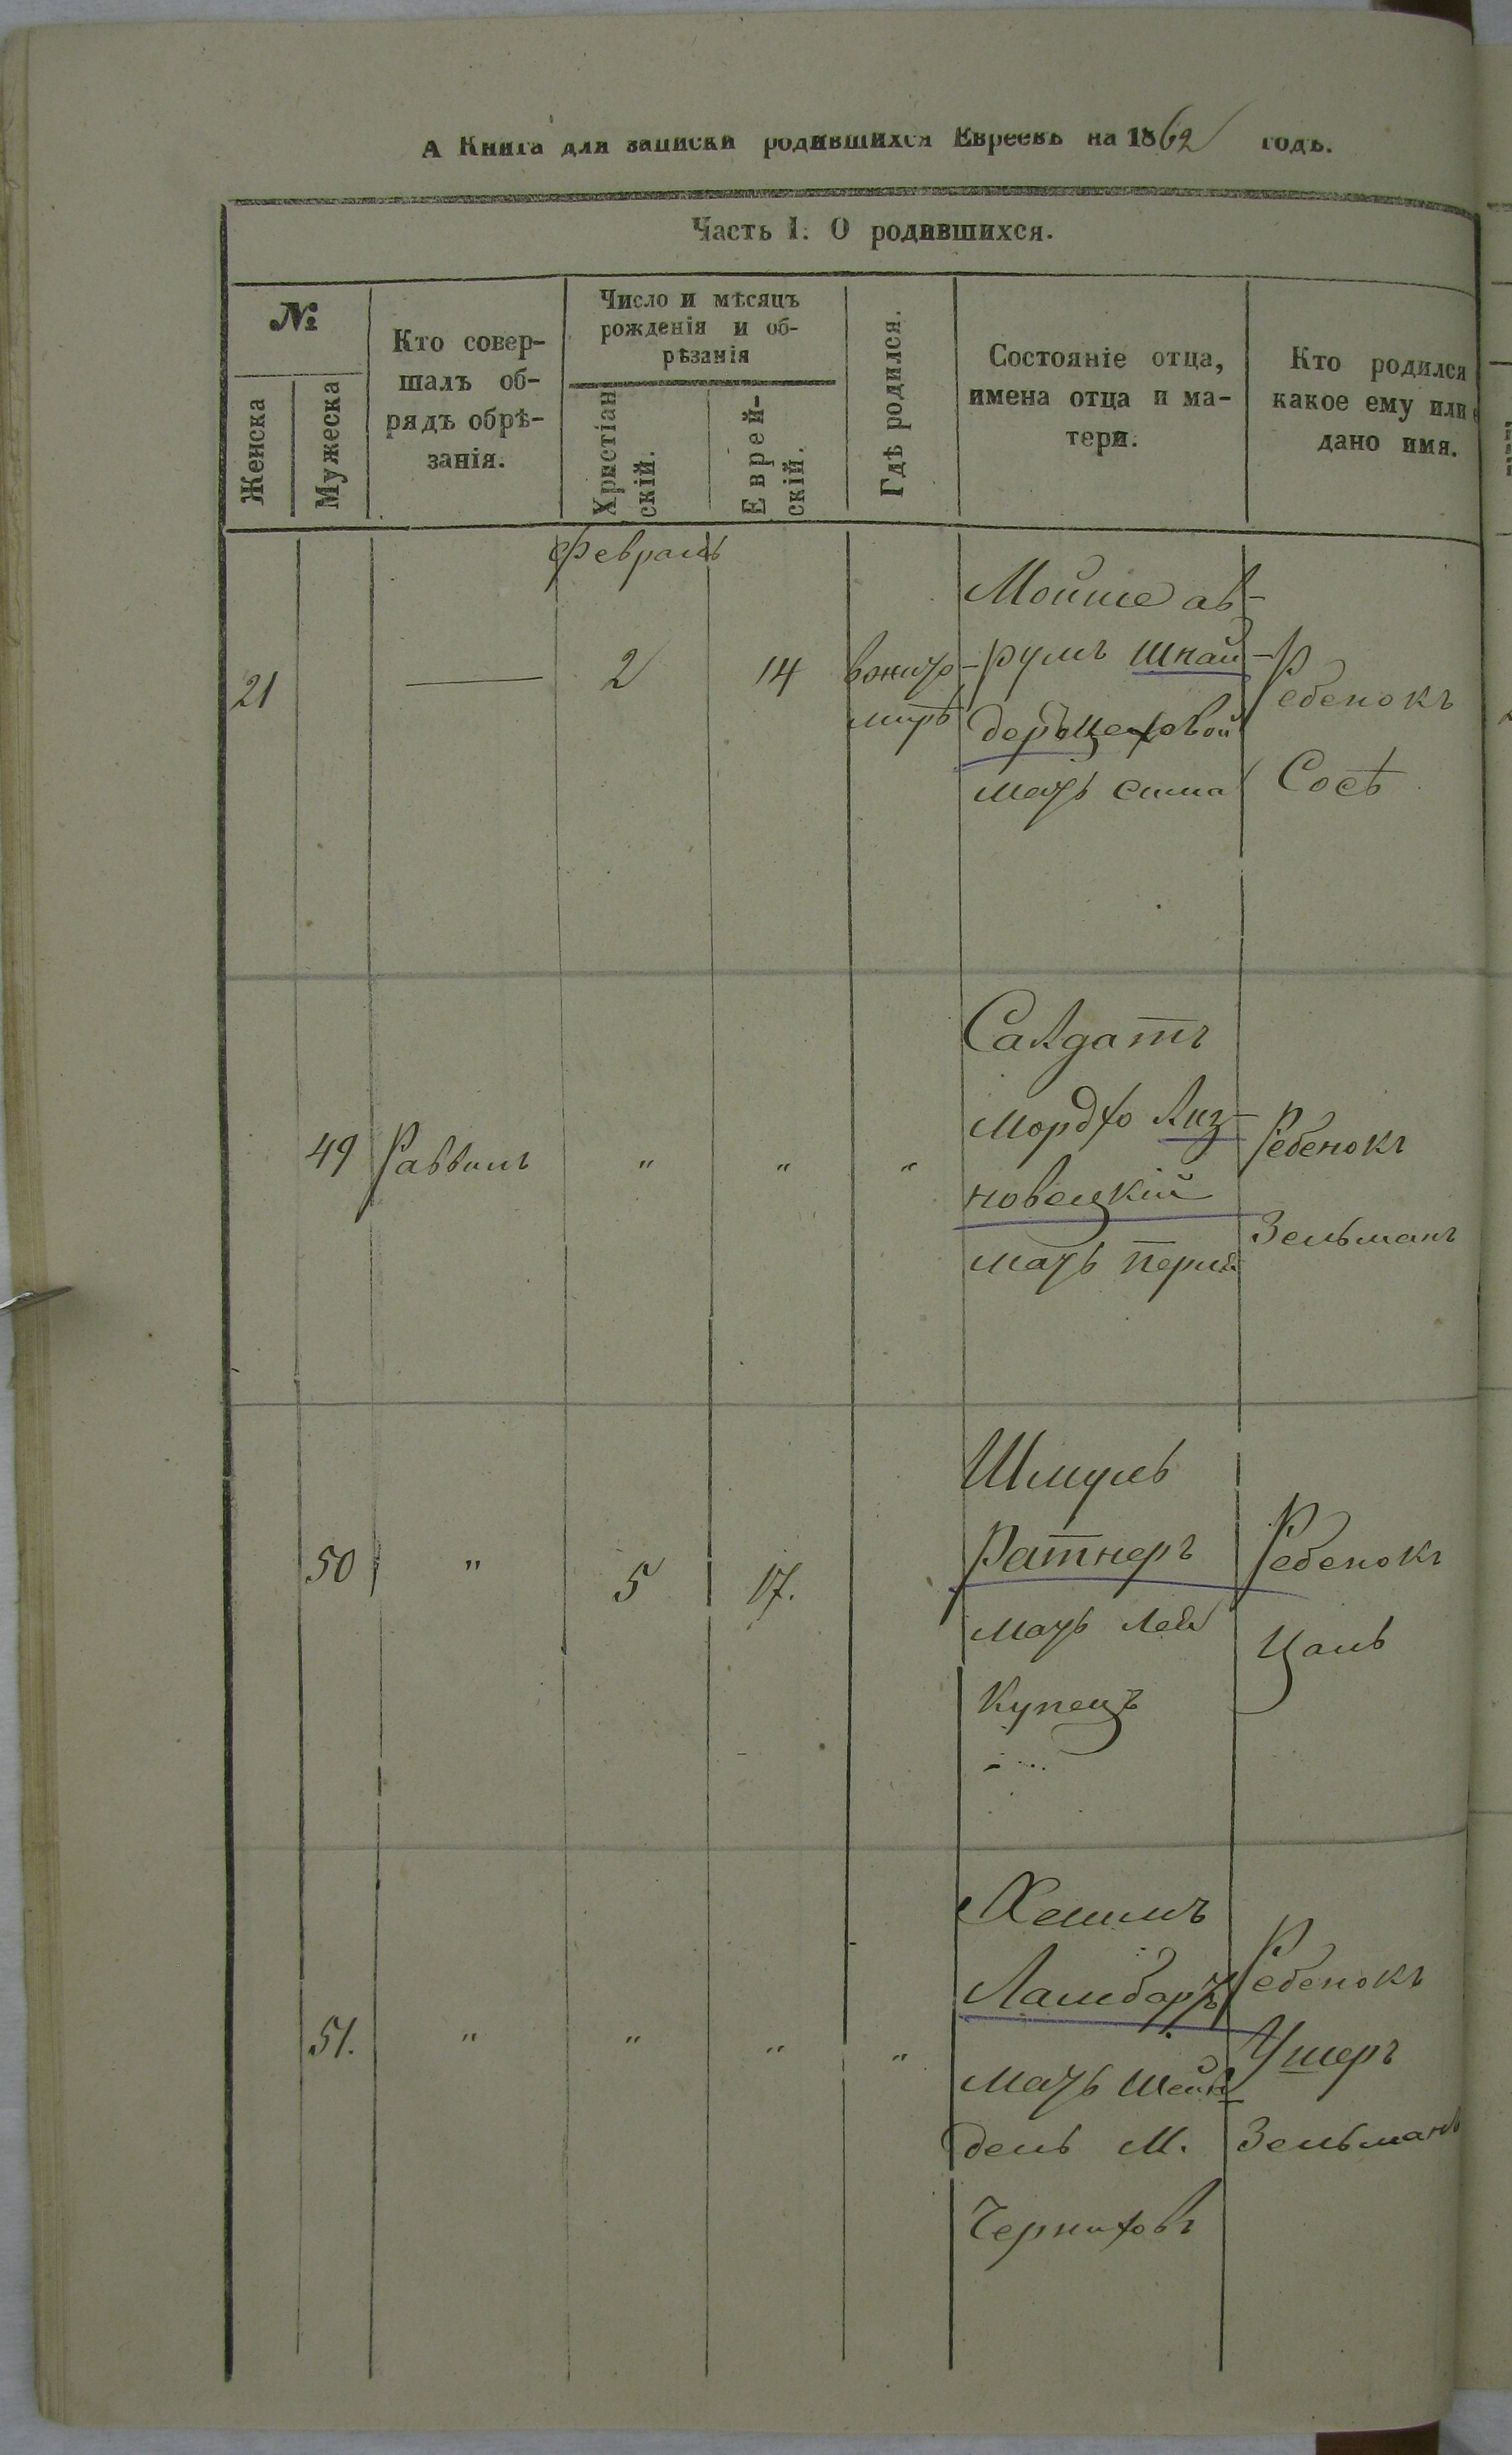 А Книга для записки родившихся Евреевъ на 1862 годъ.
Часть I. О родившихся.
№
Женска
Мужеска
Кто совер-
шалъ об-
рядъ обрѣ-
занія.
Число и мѣсяцъ
рожденія и об-
рѣзанія
Христіан
скій.
Еврей-
скій.
Гдѣ родился.
Состояніе отца,
имена отца и ма-
тери.
Кто родился
какое ему или
дано имя.
Февраль
21
2
14
вжито-
мирѣ
Мойше ав-
румъ Шнай-
деръ цеховой
мать Сима
Ребенокъ
Сосѣ
49
Раввинъ
"
"
"
Салдатъ
Мордхо Лиз-
новецкій
мать Перля
Ребенокъ
Зельманъ
50
"
5
17.
Шмуль
Ратнеръ
мать Лея
Купецъ
Ребенокъ
Цаль
51.
"
"
"
"
Хаимъ
Ламбартъ
мать Шейн
дель М.
Черниховъ
Ребенокъ
Ушеръ
Зельманъ